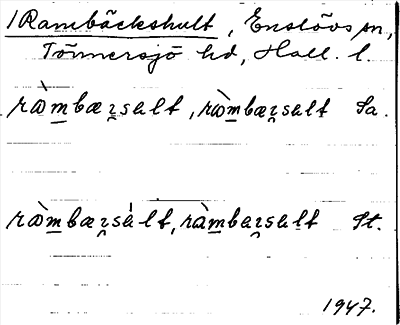 1 Rambäckshult, Enslövs sn,
Tönnersjö hd, Hall. l.
ràm̲bær̯salt, ràm̲bær̯salt Sa.
ràm̲bær̯sàlt, ràm̲bar̯salt St.
1947.